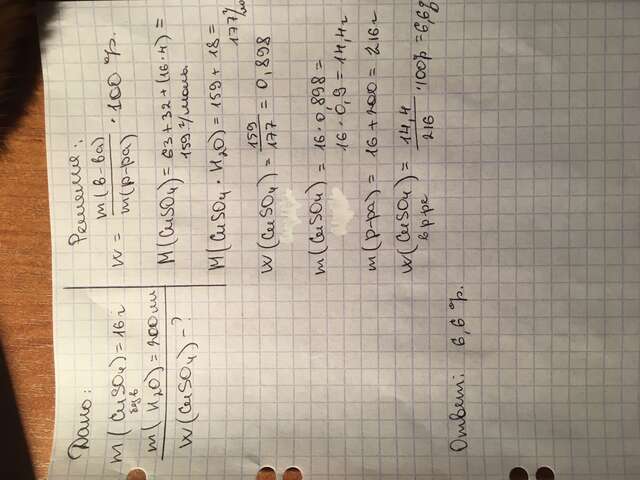 Дано:
m(CuSO4) = 16 г
безв
m(H2O) = 200 мл
W(CuSO4) - ?
Решения:
W = m(в-ва) / m(р-ра) · 100 %.
M(CuSO4) = 63 + 32 + (16·4) =
159 г/моль.
M(CuSO4 · H2O) = 159 + 18 =
177 г/мо
W(CuSO4) = 159 / 177 = 0,898
m(CuSO4) = 16 · 0,898 =
16 · 0,9 = 14,4 г
m(р-ра) = 16 + 200 = 216 г
W(CuSO4) = 14,4 / 216 · 100% = 6,6%
в р-ре
Ответ: 6,6 %.